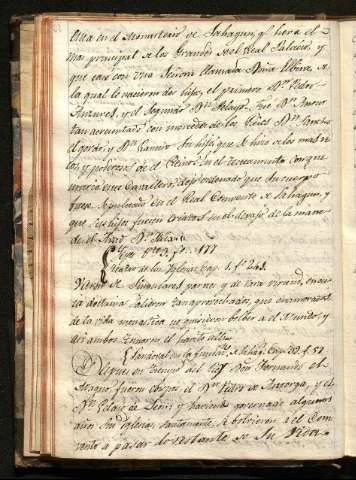 en el Monasterio de Sahagun, y hera el
mas principal de los Grandes del Real Palacio, y
que caso con una Señora llamada Doña Elvira, de
la qual le nacieron dos hijos, el primero Dn. Pedro
Ansures, y el segundo Dn. Pelayo. Fue Dn. Ansur
tan acreditado con motivo de los Reies Dn. Sancho
el gordo, y Dn. Ramiro su hijo que le hizo de los mas
y poderosos de el Reino: en el testamento con que
murio este Cavallero, dejo ordenado que su cuerpo
fuese sepultado en el Real Convento de Sahagun, y
que sus hijos fuesen criados en el devajo de la mano
de el Abad Dn.
177
Cap. 1. fo. 248.
de singulares partes, y de rara virtud,
la doctrina salieron tan aprovechados, que enamorados
de la vida monastica no quisieron bolber a el Mundo, y
asi ambos tomaron el santo abito
Sandoval en la de Sahag. Cap. 32. fo. 57
en tiempo del Rey Don Fernando el
Magno, fueron obispos el Dn. Pedro de Astorga, y el
Dn. Pelaio de Leon, y haviendo governado algunos
años sus Yglesias santamente, se bolvieron a el Com-
vento a pasar lo restante de su vida.